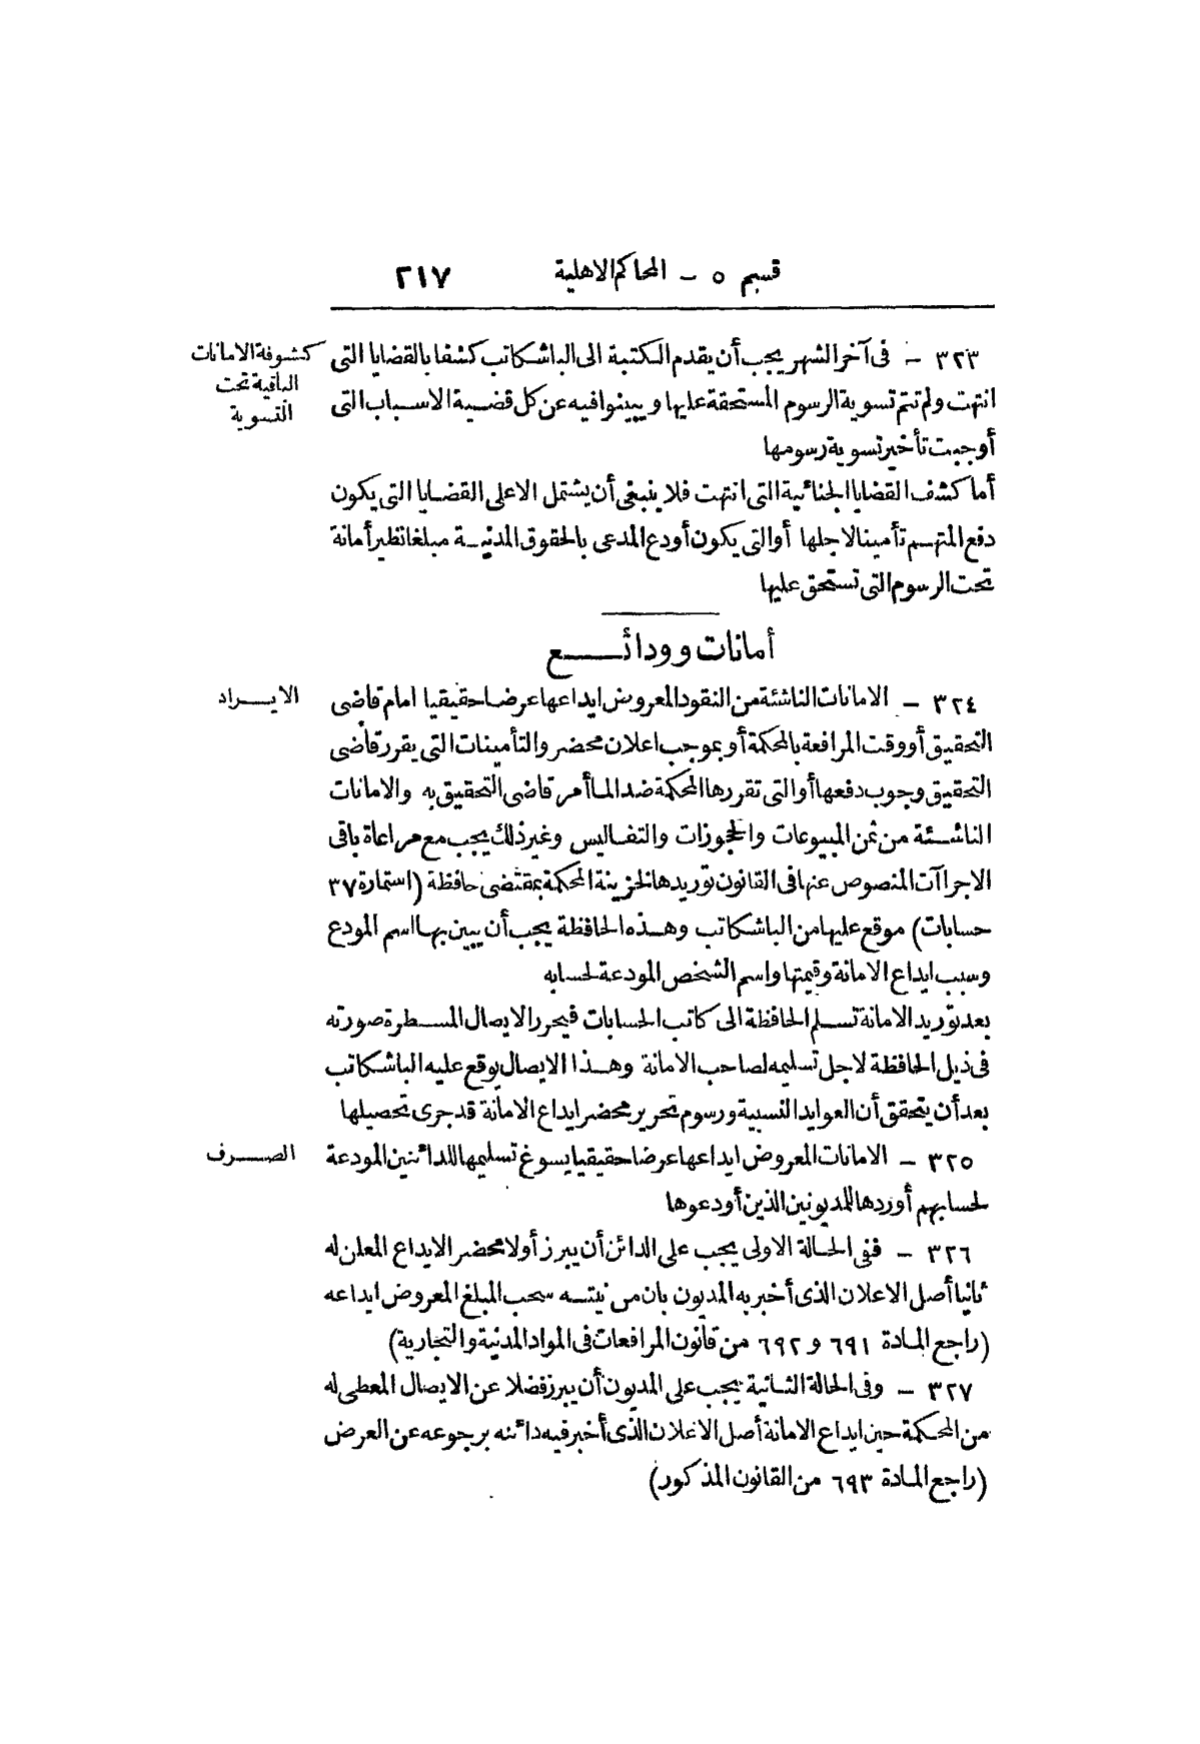 قسم ٥ – المحاكم الاهلية ٢١٧
٣٢٣ – فى آخر الشهر يجب أن يقدم الكتبة الى الباشكاتب كشفا بالقضايا التى
انتهت ولم تتم تسوية الرسوم المستحقة عليها ويبينوا فيه عن كل قضية الاسباب التى
أوجبت تأخير تسوية رسومها
كشوفة الامانات
الباقية تحت
التسوية
أما كشف القضايا الجنائية التى انتهت فلا ينبغى أن يشتمل الا على القضايا التى يكون
دفع المتهم تأمينا لاجلها أو التى يكون أودع المدعى بالحقوق المدنية مبلغا نظير أمانة
تحت الرسوم التى تستحق عليها
أمانات وودائع
٣٢٤ – الامانات الناشئة من النقود المعروض ايداعها عرضا حقيقيا امام قاضى
الايراد
التحقيق أو وقت المرافعة بالمحكمة أو بموجب اعلان محضر والتأمينات التى يقرر قاضى
التحقيق وجوب دفعها أو التى تقررها المحكمة ضد الما أمر قاضى التحقيق به والامانات
الناشئة من ثمن المبيوعات والحجوزات والتفاليس وغير ذلك يجب مع مراعاة باقى
الاجراآت المنصوص عنها فى القانون توريدها لخزينة المحكمة بمقتضى حافظة (استمارة ٣٧
حسابات) موقع عليها من الباشكاتب وهذه الحافظة يجب أن يبين بها اسم المودع
وسبب ايداع الامانة وقيمتها واسم الشخص المودعة لحسابه
بعد توريد الامانة تسلم الحافظة الى كاتب الحسابات فيحرر الايصال المسطرة صورته
فى ذيل الحافظة لاجل تسليمه لصاحب الامانة وهذا الايصال يوقع عليه الباشكاتب
بعد أن يتحقق أن العوايد النسبية ورسوم تحرير محضر ايداع الامانة قد جرى تحصيلها
٣٢٥ – الامانات المعروض ايداعها عرضا حقيقيا يسوغ تسليمها للدائنين المودعة
الصرف
لحسابهم أو ردها للمديونين الذين أودعوها
٣٢٦ – ففى الحالة الاولى يجب على الدائن أن يبرز أولا محضر الايداع المعلن له
ثانيا أصل الاعلان الذى أخبر به المديون بان من نيته سحب المبلغ المعروض ايداعه
(راجع المادة ٦٩١ و ٦٩٢ من قانون المرافعات فى المواد المدنية والتجارية)
٣٢٧ – وفى الحالة الثانية يجب على المديون أن يبرز فضلا عن الايصال المعطى له
من المحكمة حين ايداع الامانة أصل الاعلان الذى أخبر فيه دائنه برجوعه عن العرض
(راجع المادة ٦٩٣ من القانون المذكور)